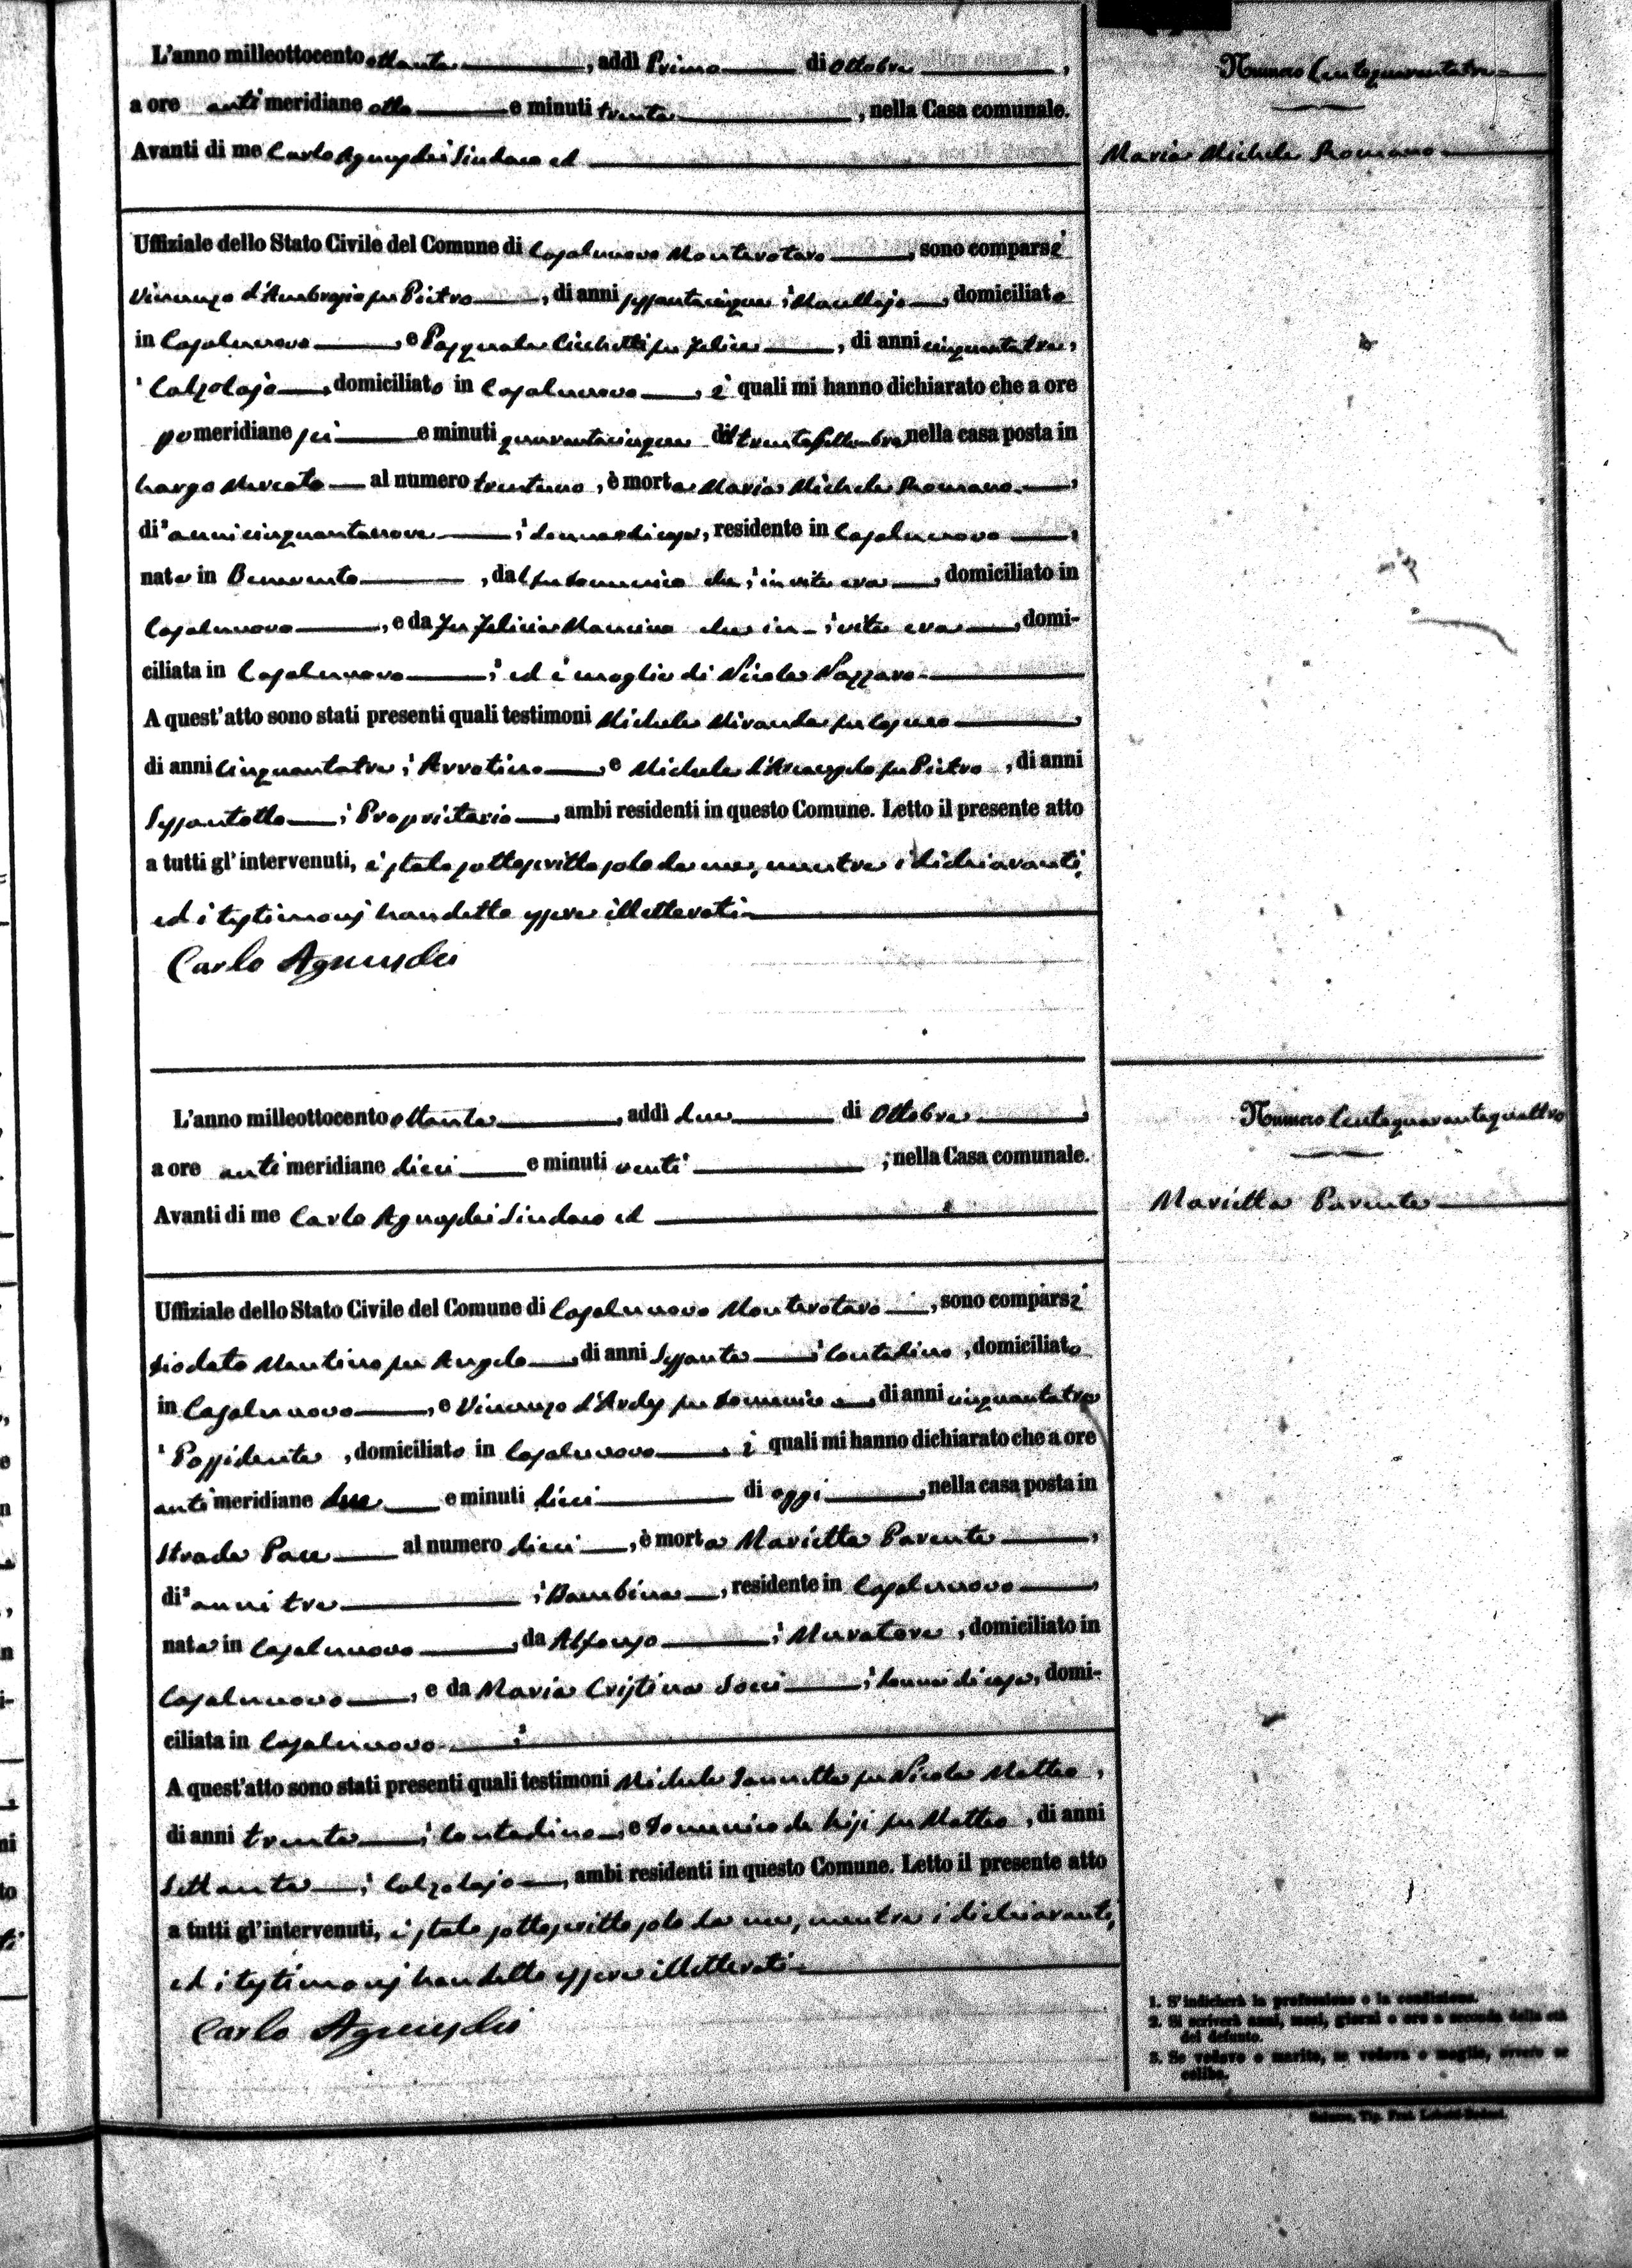 L'anno milleottocento ottanta, addì Primo di Ottobre,
a ore anti meridiane otto e minuti trenta, nella Casa comunale.
Avanti di me Carlo Agnusdei Sindaco ed
Uffiziale dello Stato Civile del Comune di Casalnuovo Monterotaro, sono comparsi
Vincenzo d'Ambrosio fu Pietro, di anni sessantacinque, Macellajo domiciliato
in Casalnuovo, e Pasquale Cicchetti fu Felice, di anni cinquantatre,
Calzolajo, domiciliato in Casalnuovo, i quali mi hanno dichiarato che a ore
pomeridiane sei e minuti quarantacinque del trenta Settembre nella casa posta in
Largo Mercato al numero trentuno, è morta Maria Michela Romano,
di anni cinquantanove, donna di casa, residente in Casalnuovo,
nata in Benevento, dal fu Domenico che in vita era, domiciliato in
Casalnuovo, e da fu Felicia Mancino che in vita era, domi-
ciliata in Casalnuovo; ed è moglie di Nicola Nazzaro
A quest'atto sono stati presenti quali testimoni Michele Miranda fu
di anni Cinquantatre, Arrotino e Michele d'Arcangelo fu Pietro, di anni
Sessantotto, Proprietario, ambi residenti in questo Comune. Letto il presente atto
a tutti gl'intervenuti, è stato sottoscritto solo da me, mentre i dichiaranti,
ed i testimonj han detto essere illetterati
Carlo Agnusdei
Numero Centoquarantatre
Maria Michela Romano
L'anno milleottocento ottanta, addì due di Ottobre,
a ore anti meridiane dieci e minuti venti, nella Casa comunale.
Avanti di me Carlo Agnusdei Sindaco ed
Uffiziale dello Stato Civile del Comune di Casalnuovo Monterotaro, sono comparsi
Diodato Mantino fu Angelo, di anni Sessanta, Contadino, domiciliato
in Casalnuovo, e Vincenzo d'Ardes fu Domenico, di anni cinquantatre
Possidente, domiciliato in Casalnuovo, i quali mi hanno dichiarato che a ore
anti meridiane due e minuti dieci di oggi, nella casa posta in
Strada Pace al numero dieci, è morta Marietta Parente,
di anni tre, Bambina, residente in Casalnuovo,
nata in Casalnuovo, da Alfonso, Muratore, domiciliato in
Casalnuovo, e da Maria Cristina Socci, donna di casa, domi-
ciliata in Casalnuovo
A quest'atto sono stati presenti quali testimoni Michele Iannetta fu Nicola Matteo,
di anni trenta, Contadino, e Domenico de fu Matteo, di anni
Settanta, Calzolajo, ambi residenti in questo Comune. Letto il presente atto
a tutti gl'intervenuti, è stato sottoscritto solo da me, mentre i dichiaranti,
ed i testimonj han detto essere illetterati
Carlo Agnusdei
Numero Centoquarantaquattro
Marietta Parente
1. S'indicherà la professione o la condizione.
2. Si scriverà anni, mesi, giorni o ore a seconda della età
del defunto.
3. Se vedovo o marito, se vedova o moglie, ovvero se
celibe.